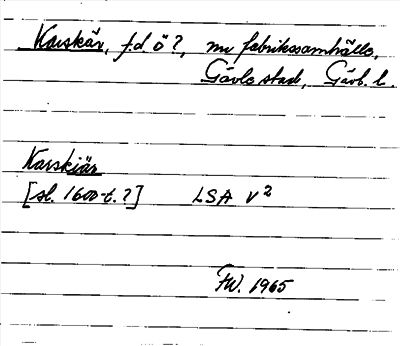 Karskär, f.d. ö?, nu fabrikssamhälle,
Gävle stad, Gävl. l.
Karskiär
[sl. 1600-t.?] LSA V²
FW. 1965